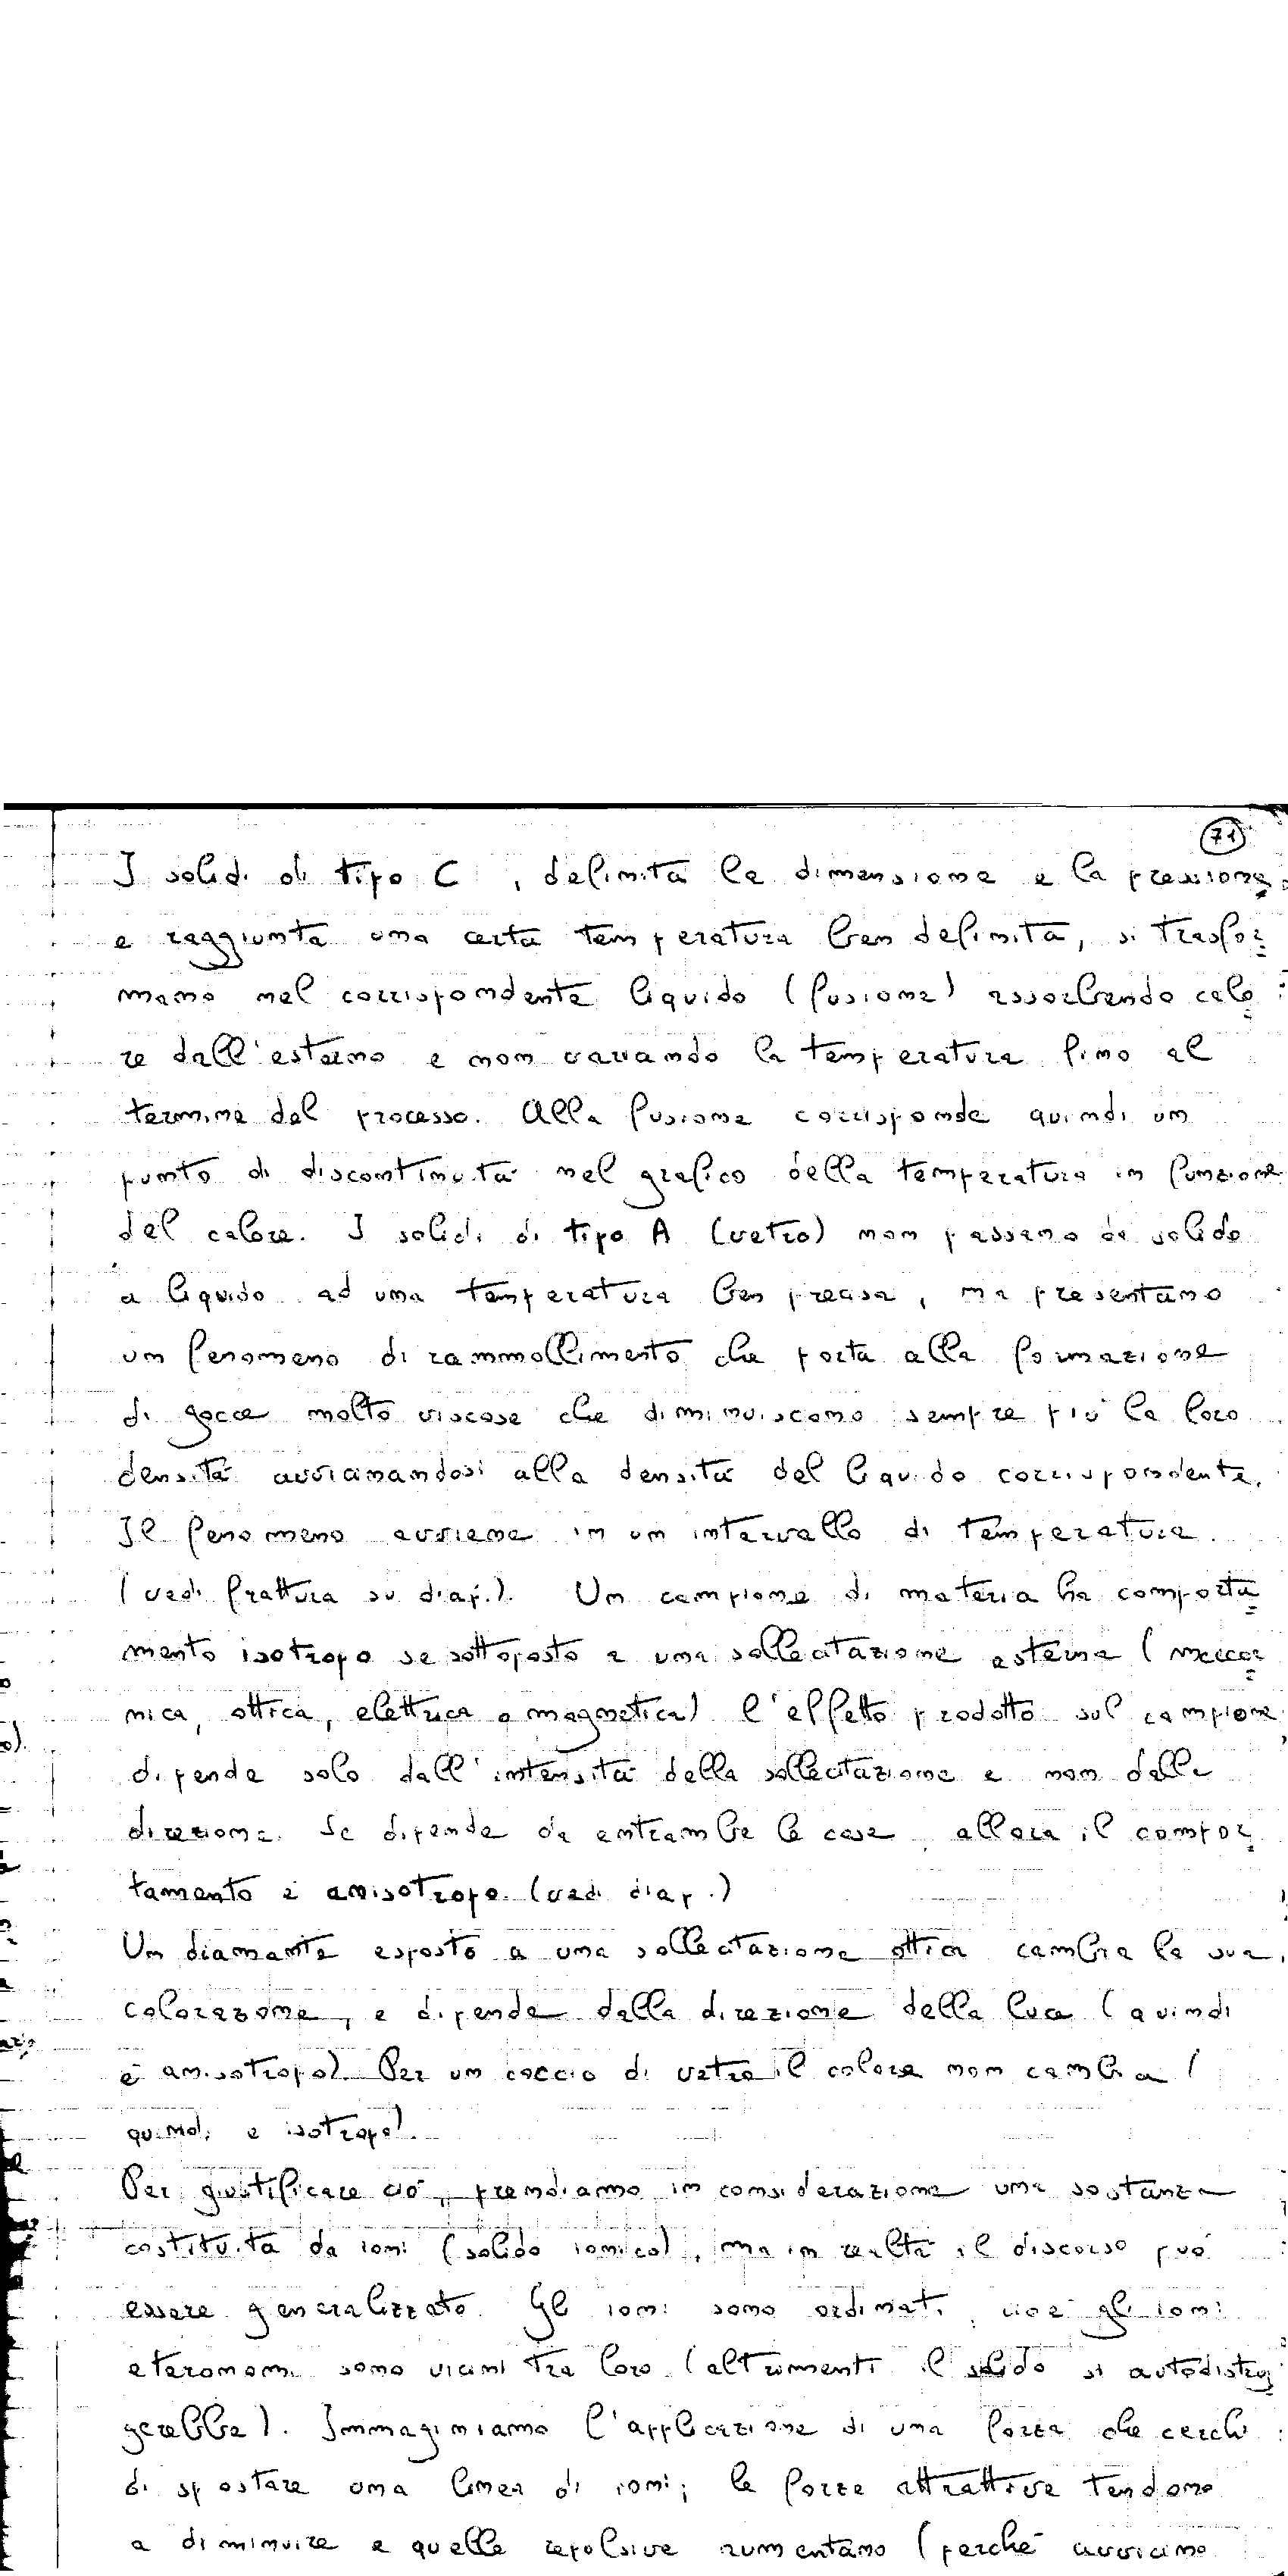 71
I solidi di tipo C, delimita la dimensione e la pressione,
e raggiunta una certa temperatura ben delimita, si trasfor=
mano nel corrispondente liquido (fusione) assorbendo calo=
re dall'esterno e non variando la temperatura fino al
termine del processo. Alla fusione corrisponde quindi un
punto di discontinuità nel grafico della temperatura in funzione
del calore. I solidi di tipo A (vetro) non passano da solido
a liquido ad una temperatura ben precisa, ma presentano
un fenomeno di rammollimento che porta alla formazione
di gocce molto viscose che diminuiscono sempre più la loro
densità avvicinandosi alla densità del liquido corrispondente.
Il fenomeno avviene in un intervallo di temperatura.
(vedi frattura su diap.). Un campione di materia ha comporta=
mento isotropo se sottoposto a una sollecitazione esterna (mecca=
nica, ottica, elettrica o magnetica) l'effetto prodotto sul campione
dipende solo dall'intensità della sollecitazione e non dalla
direzione. Se dipende da entrambe le cose, allora il compor=
tamento è anisotropo. (vedi diap.)
Un diamante esposto a una sollecitazione ottica cambia la sua
colorazione, e dipende dalla direzione della luce (quindi
è anisotropo). Per un coccio di vetro il colore non cambia (
quindi è isotropo).
Per giustificare ciò, prendiamo in considerazione una sostanza
costituita da ioni (solido ionico), ma in realtà il discorso può
essere generalizzato. Gli ioni sono ordinati, cioè gli ioni
eteronomi sono vicini tra loro (altrimenti il solido si autodistrug=
gerebbe). Immaginiamo l'applicazione di una forza che cerchi
di spostare una linea di ioni; le forze attrattive tendono
a diminuire e quelle repulsive aumentano (perché avvicino